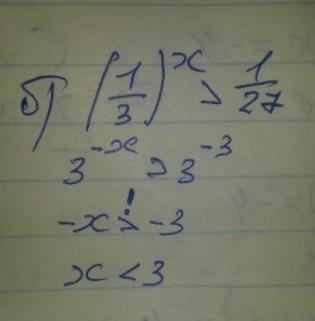 б) (1/3)^x > 1/27
3^-x > 3^-3
!
-x > -3
x < 3